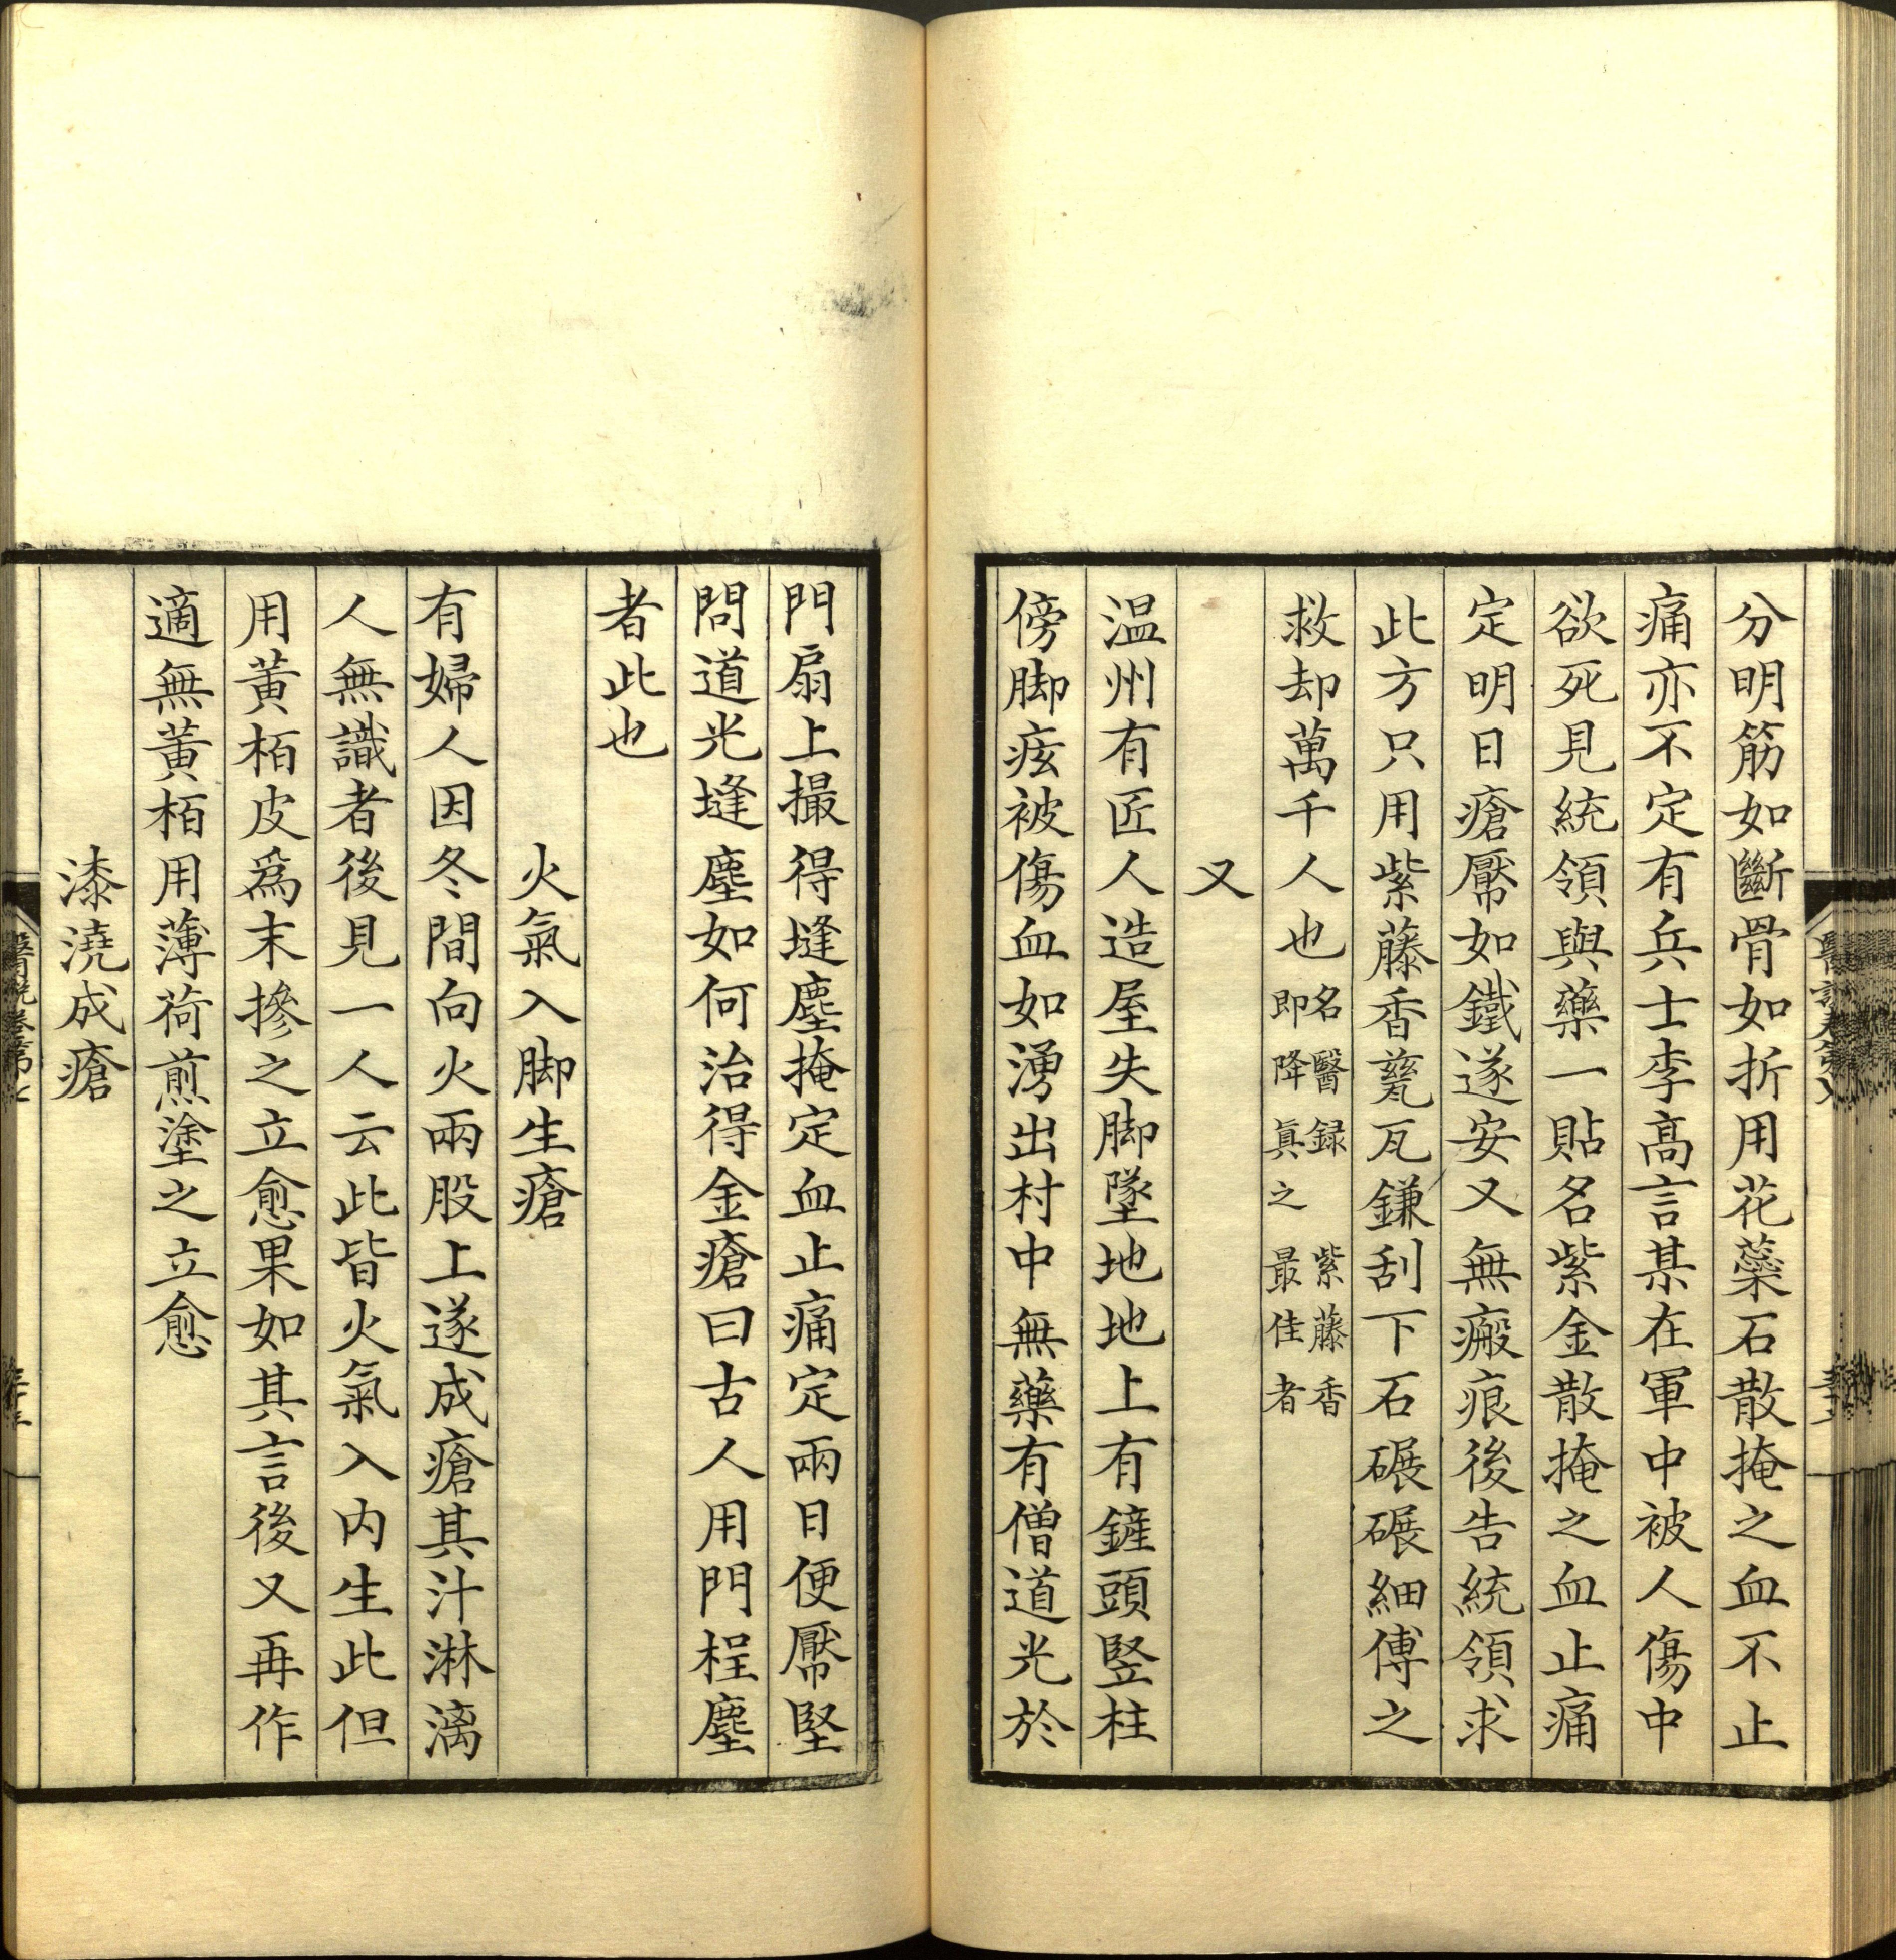 分明筋如斷骨如折用花蘂石散掩之血不止
痛亦不定有兵士李高言某在軍中被人傷中
欲死見統領與藥一貼名紫金散掩之血止痛
定明日瘡靨如鐵遂安又無瘢痕後告統領求
此方只用紫藤香甆瓦鎌刮下石碾碾細傅之
救却萬千人也名醫録紫藤香
即降眞之最佳者
又
温州有匠人造屋失脚墜地地上有鏟頭竪柱
傍脚痃被傷血如湧出村中無藥有僧道光於
門扇上撮得縫塵掩定血止痛定兩日便靨堅
問道光縫塵如何治得金瘡曰古人用門桯塵
者此也
火氣入脚生瘡
有婦人因冬間向火兩股上遂成瘡其汁淋漓
人無識者後見一人云此皆火氣入内生此但
用黄栢皮爲末摻之立愈果如其言後又再作
適無黄栢用薄荷煎塗之立愈
漆澆成瘡